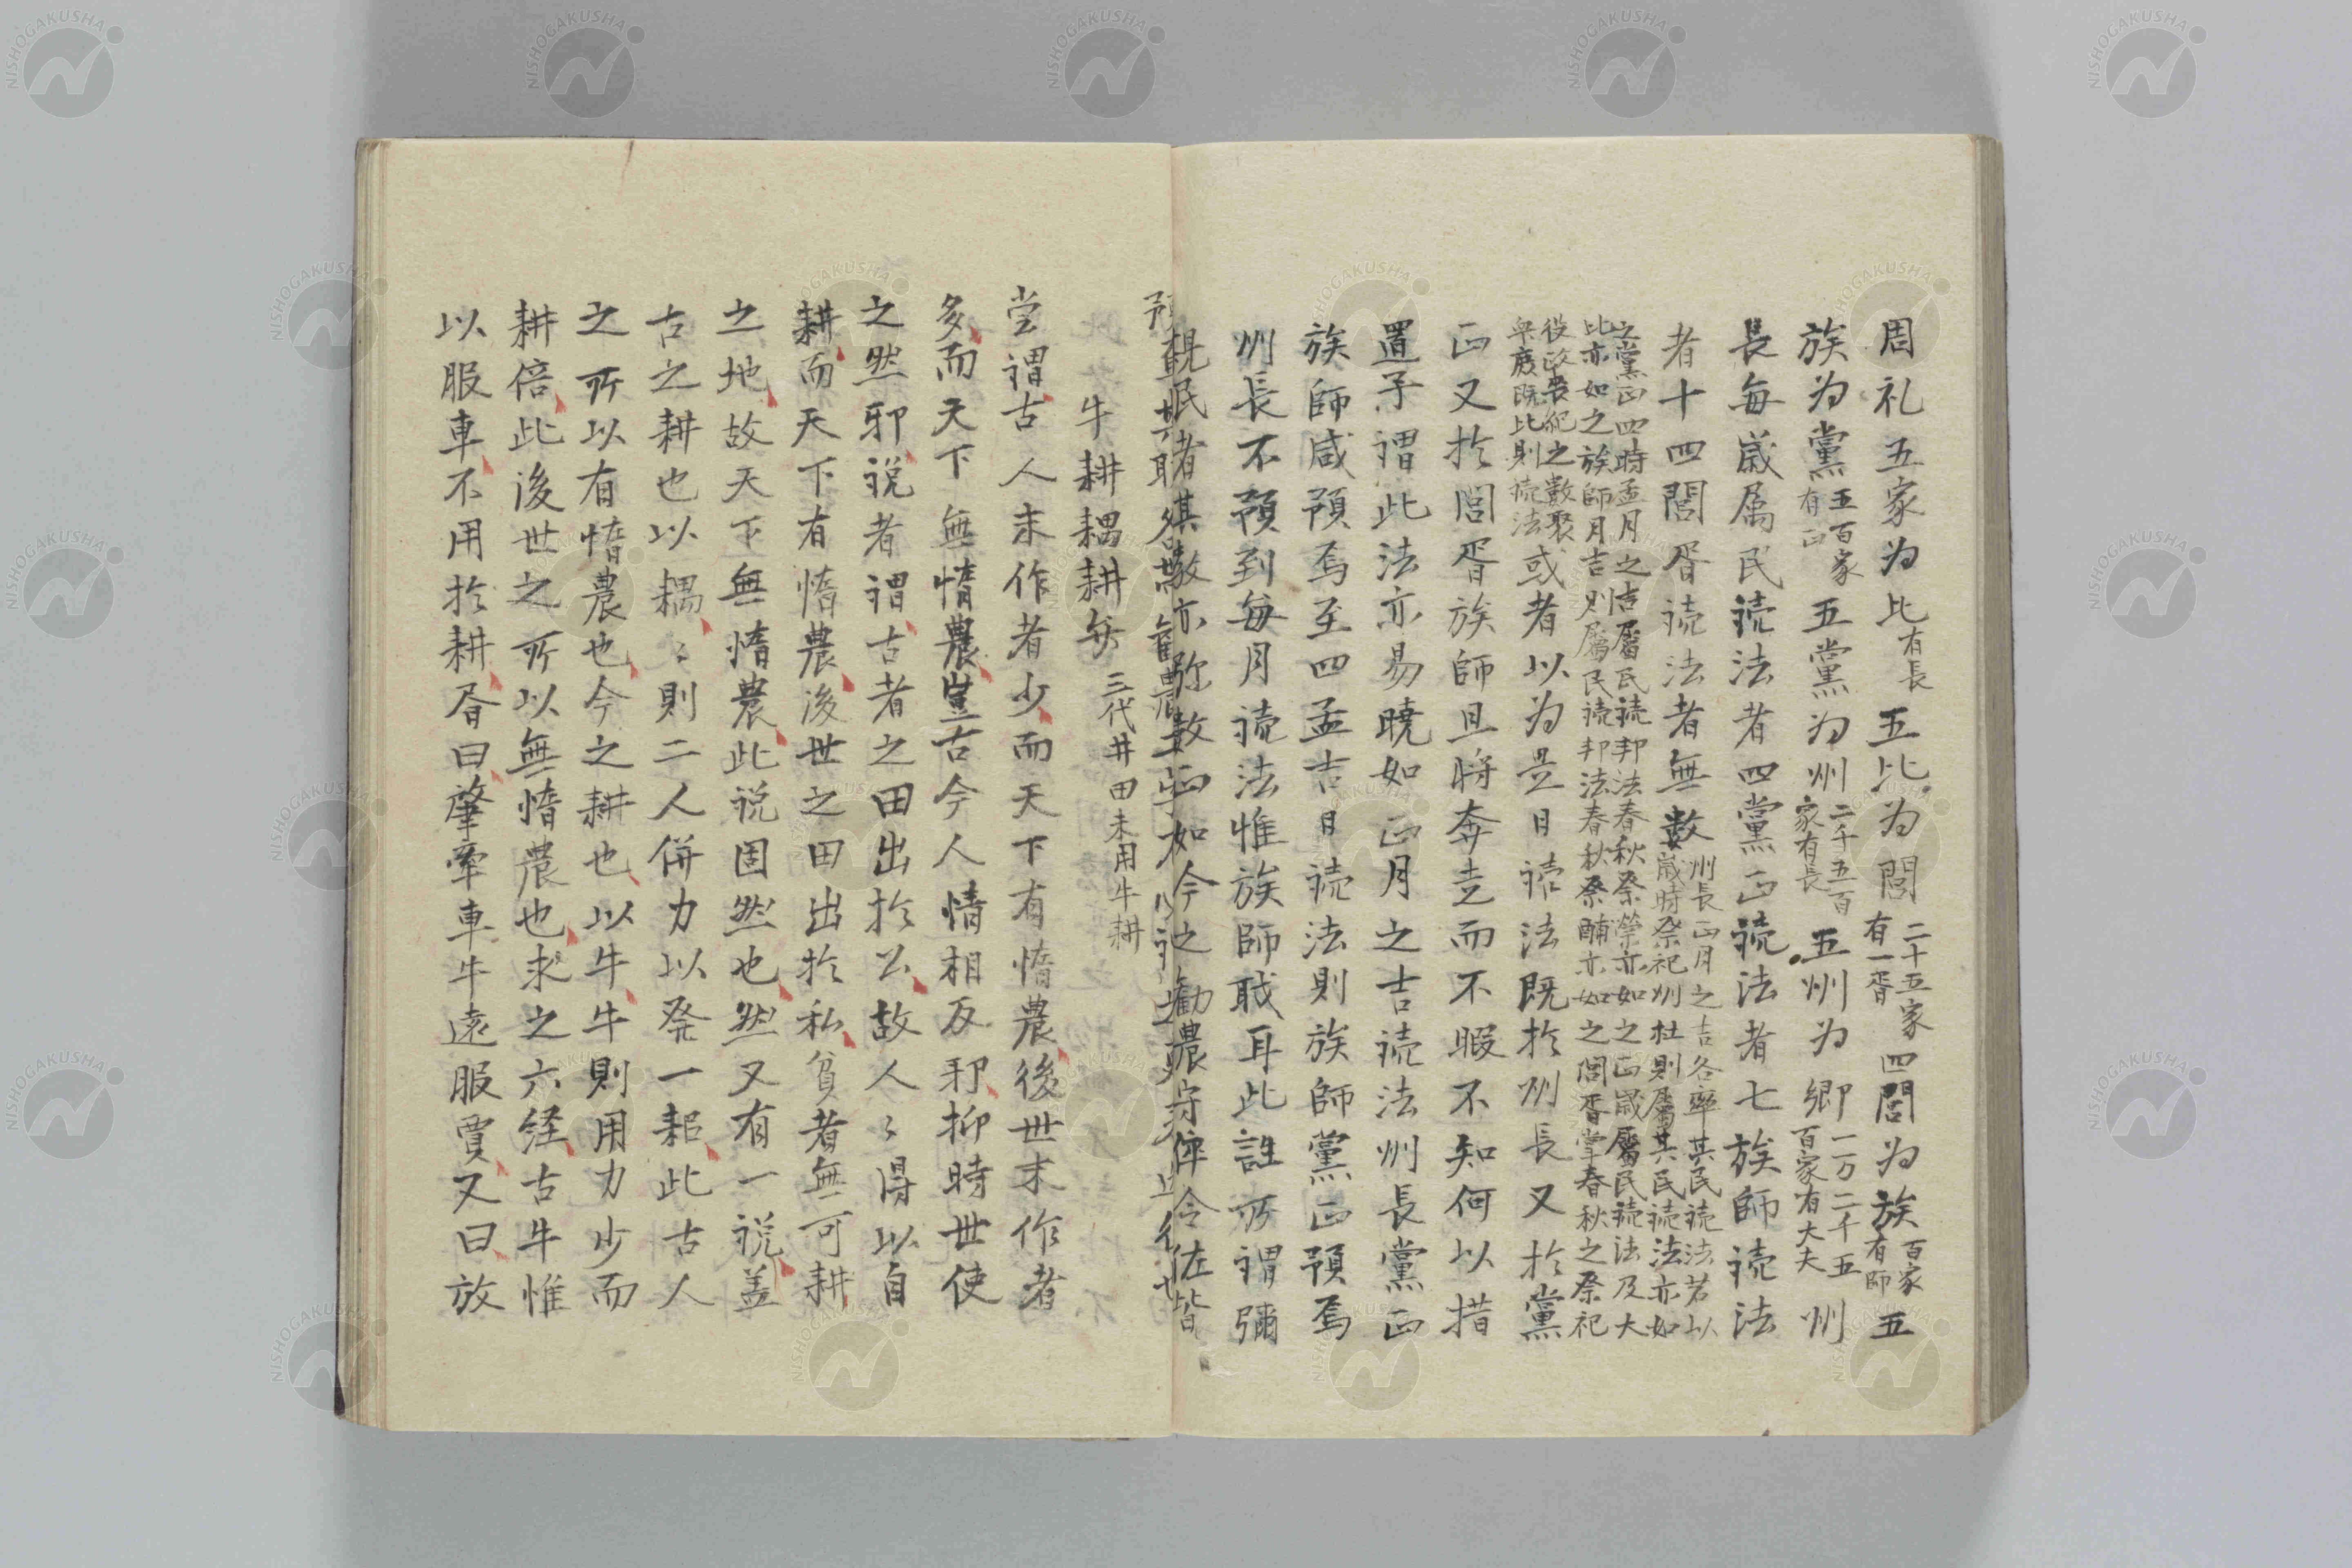 周礼五家为比有長五比为閭二十五家有一胥四閭为族百家有師五
族为黨五百家有正五黨为州二千五百家有長五州为郷一万二千五百家有大夫州
長每歳属民読法者四黨正読法者七族師読法
者十四閭胥読法者無数州長正月之吉各率其民読法若以歳時祭祀州社則屬其民読法亦如
之黨正四時孟月之吉屬民読邦法春秋祭禜亦如之正歳屬民読法及大比亦如之族師月吉則屬民読邦法春秋祭酺亦如之閭胥掌春秋之祭祀
役政喪紀之數聚衆庶既比則読法或者以为是日読法既於州長又於黨
正又於閭胥族師且将奔走而不暇不知何以措
置予謂此法亦易曉如正月之吉読法州長黨正
族師咸預焉至四孟吉日読法則族師黨正預焉
州長不預到每月読法惟族師職耳此註所謂彌
親民者其教亦弥数 如今之勸農守倅令佐皆
牛耕耦耕無 三代井田未用牛耕
嘗謂古人末作者少而天下有惰農後世末作者
多而天下無惰農豈古今人情相反邪抑時世使
之然邪説者謂古者之田出於公故人〻得以自
耕而天下有惰農後世之田出於私貧者無可耕
之地故天下無惰農此説固然也然又有一説盖
古之耕也以耦〻則二人併力以発一耜此古人
之所以有惰農也今之耕也以牛牛則用力少而
耕倍此後世之所以無惰農也求之六経古牛惟
以服車不用於耕胥曰肇牽車牛遠服賈又曰放
NISHOGAKUSHA